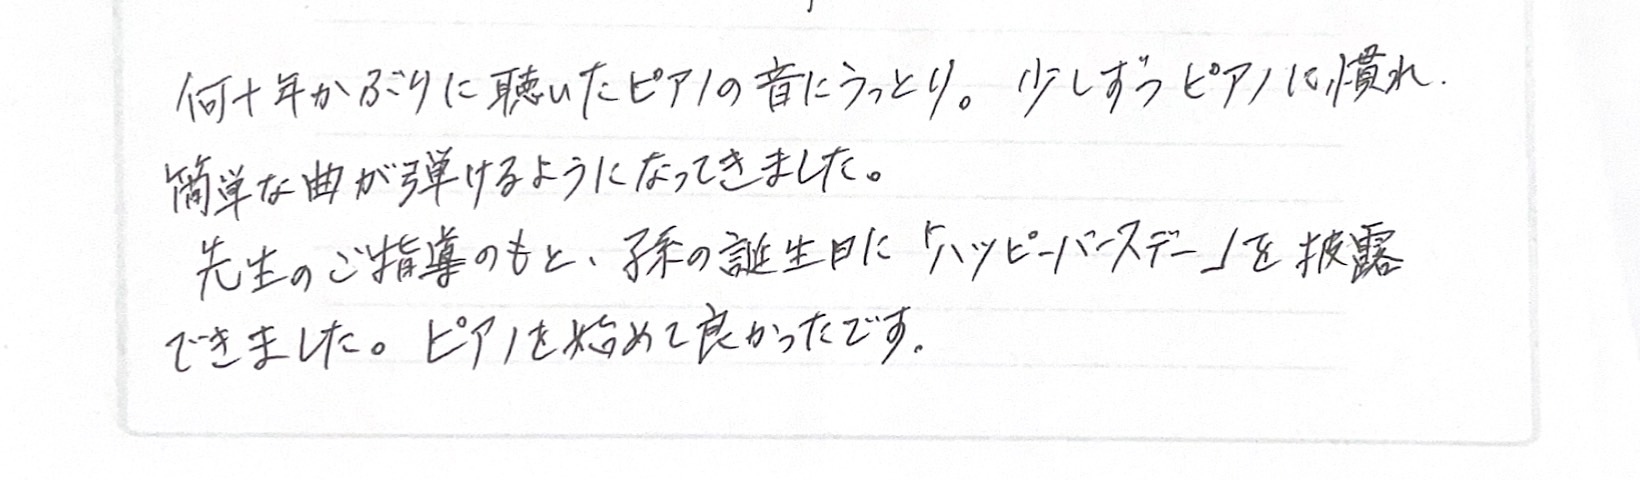 何十年かぶりに聴いたピアノの音にうっとり。少しずつピアノに慣れ.
簡単な曲が弾けるようになってきました。
先生のご指導のもと、孫の誕生日に「ハッピーバースデー」を披露
できました。ピアノを始めて良かったです.